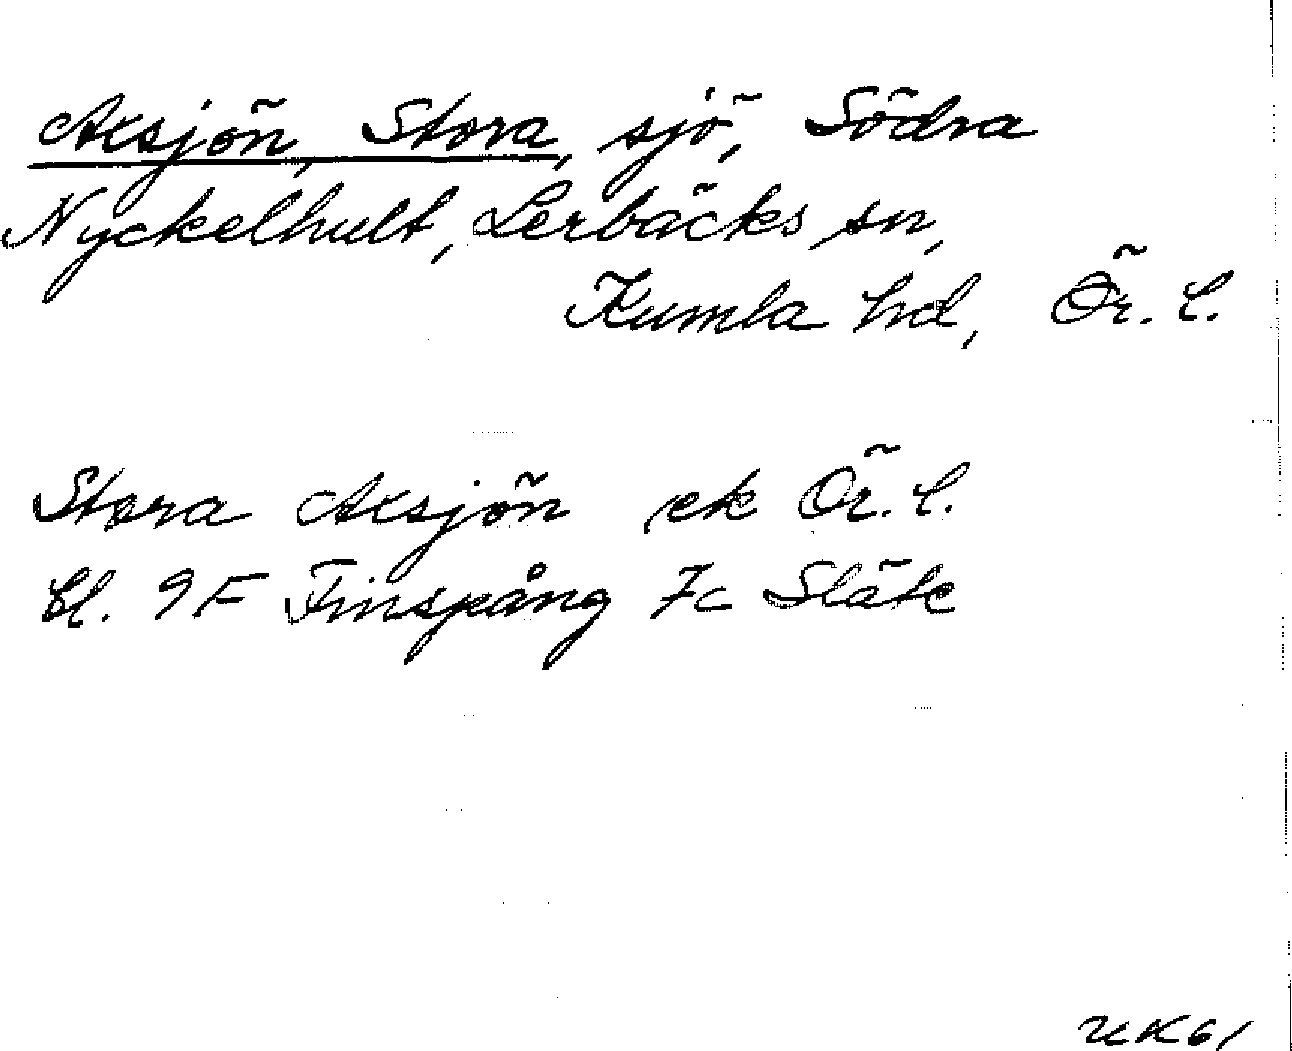 Aksjön, Stora, sjö, Södra
Nyckelhult, Lerbäcks sn,
Kumla hd, Ör. l.
Stora Aksjön ek Ör. l.
bl. 9F Finspång 7c Släte
UK61